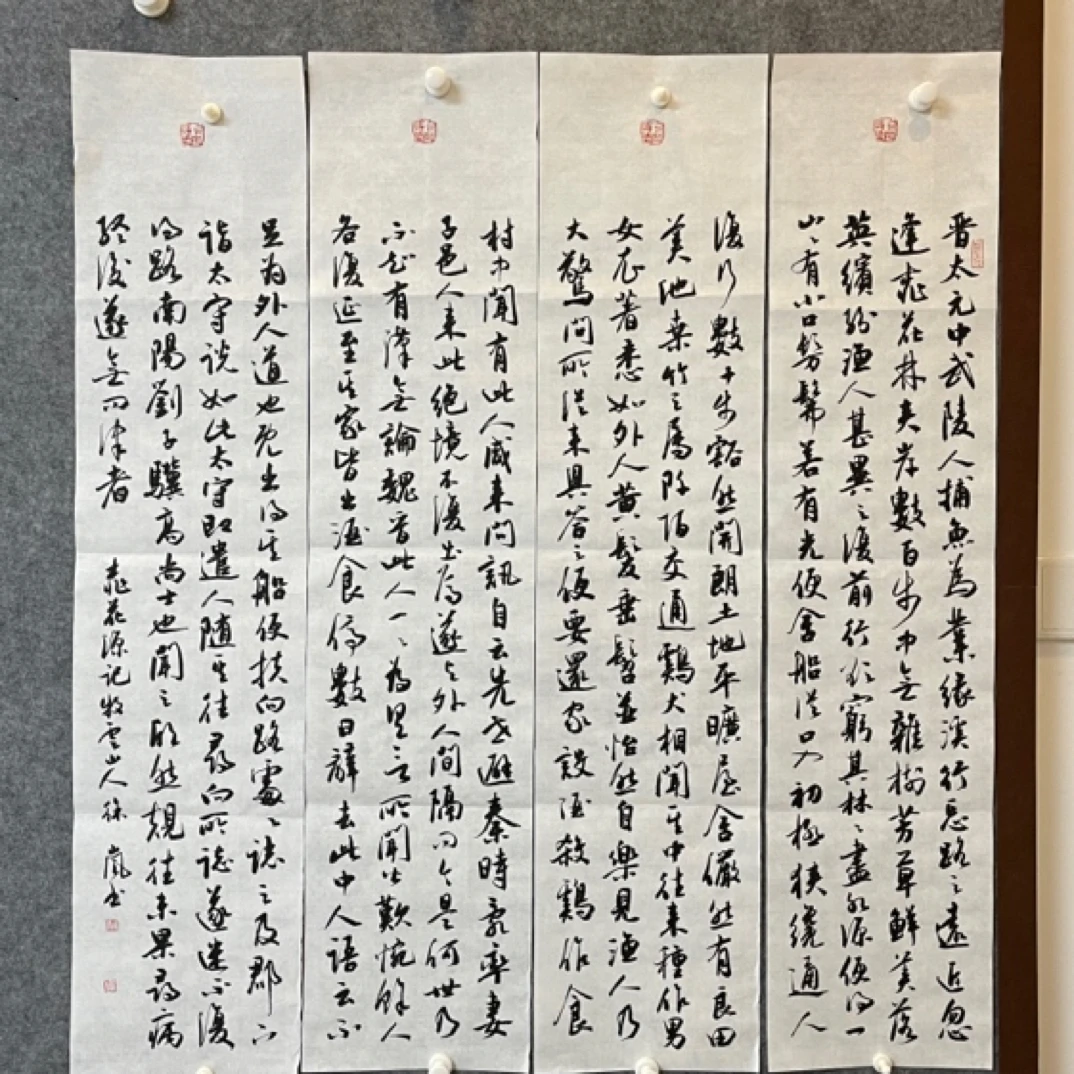 晋太元中武陵人捕魚為業緣溪行忘路之遠近忽
逢桃花林夾岸數百步中無雜樹芳草鮮美落
英繽紛漁人甚異之復前行欲窮其林〻盡水源便得一
山〻有小口髣髴若有光便舍船從口入初極狹纔通人
復行數十步豁然開朗土地平曠屋舍儼然有良田
美池桑竹之屬阡陌交通鷄犬相聞其中往來種作男
女衣著悉如外人黃髮垂髫並怡然自樂見漁人乃
大驚問所從來具答之便要還家設酒殺鷄作食
村中聞有此人咸來問訊自云先世避秦時亂率妻
子邑人來此絕境不復出焉遂与外人間隔問今是何世乃
不知有漢無論魏晉此人一〻為具言所聞皆歎惋餘人
各復延至其家皆出酒食停數日辭去此中人語云不
足為外人道也既出得其船便扶向路處〻誌之及郡下
詣太守說如此太守即遣人随其往尋向所誌遂迷不復
得路南陽劉子驥高尚士也聞之欣然規往未果尋病
終後遂無問津者 桃花源記牧雲山人徐嵐書